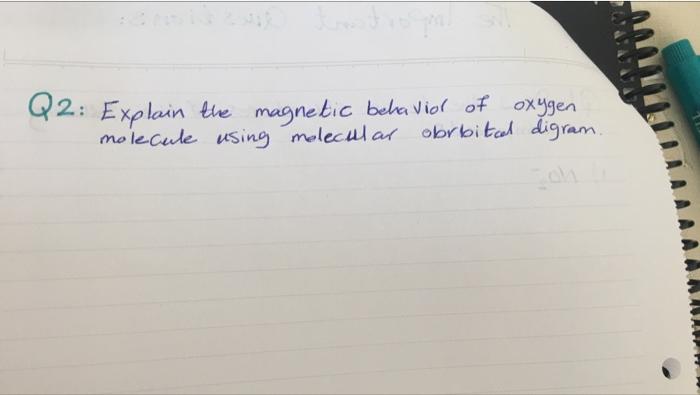 Q2: Explain the magnetic behavior of oxygen
molecule using molecular obrbital digram.